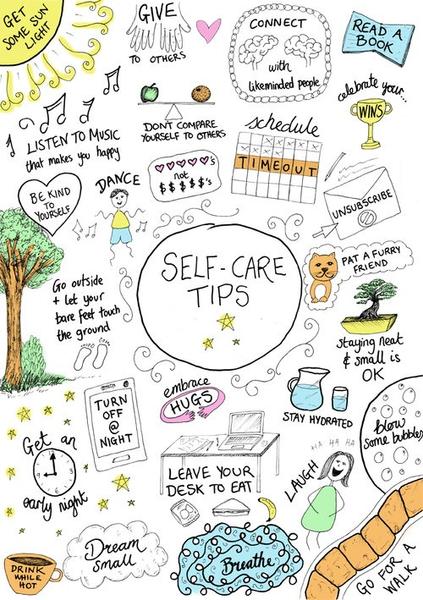 GET
SOME SUN
LIGHT
GIVE
TO OTHERS
CONNECT
with
likeminded people
READ A
BOOK
celebrate your...
WINS
LISTEN TO MUSIC
that makes you happy
DON'T COMPARE
YOURSELF TO OTHERS
schedule
TIMEOUT
BE KIND
TO
YOURSELF
DANCE
not
$ $ $ $ $'s
UNSUBSCRIBE
SELF-CARE
TIPS
PAT A FURRY
FRIEND
Go outside
+ let your
bare feet touch
the ground
staying neat
& small is
OK
TURN
OFF
@
NIGHT
embrace
HUGS
STAY HYDRATED
blow
some bubbles
Get an
early night
LEAVE YOUR
DESK TO EAT
HA HA HA
LAUGH
DRINK
WHILE
HOT
Dream
small
Breathe
GO FOR A
WALK